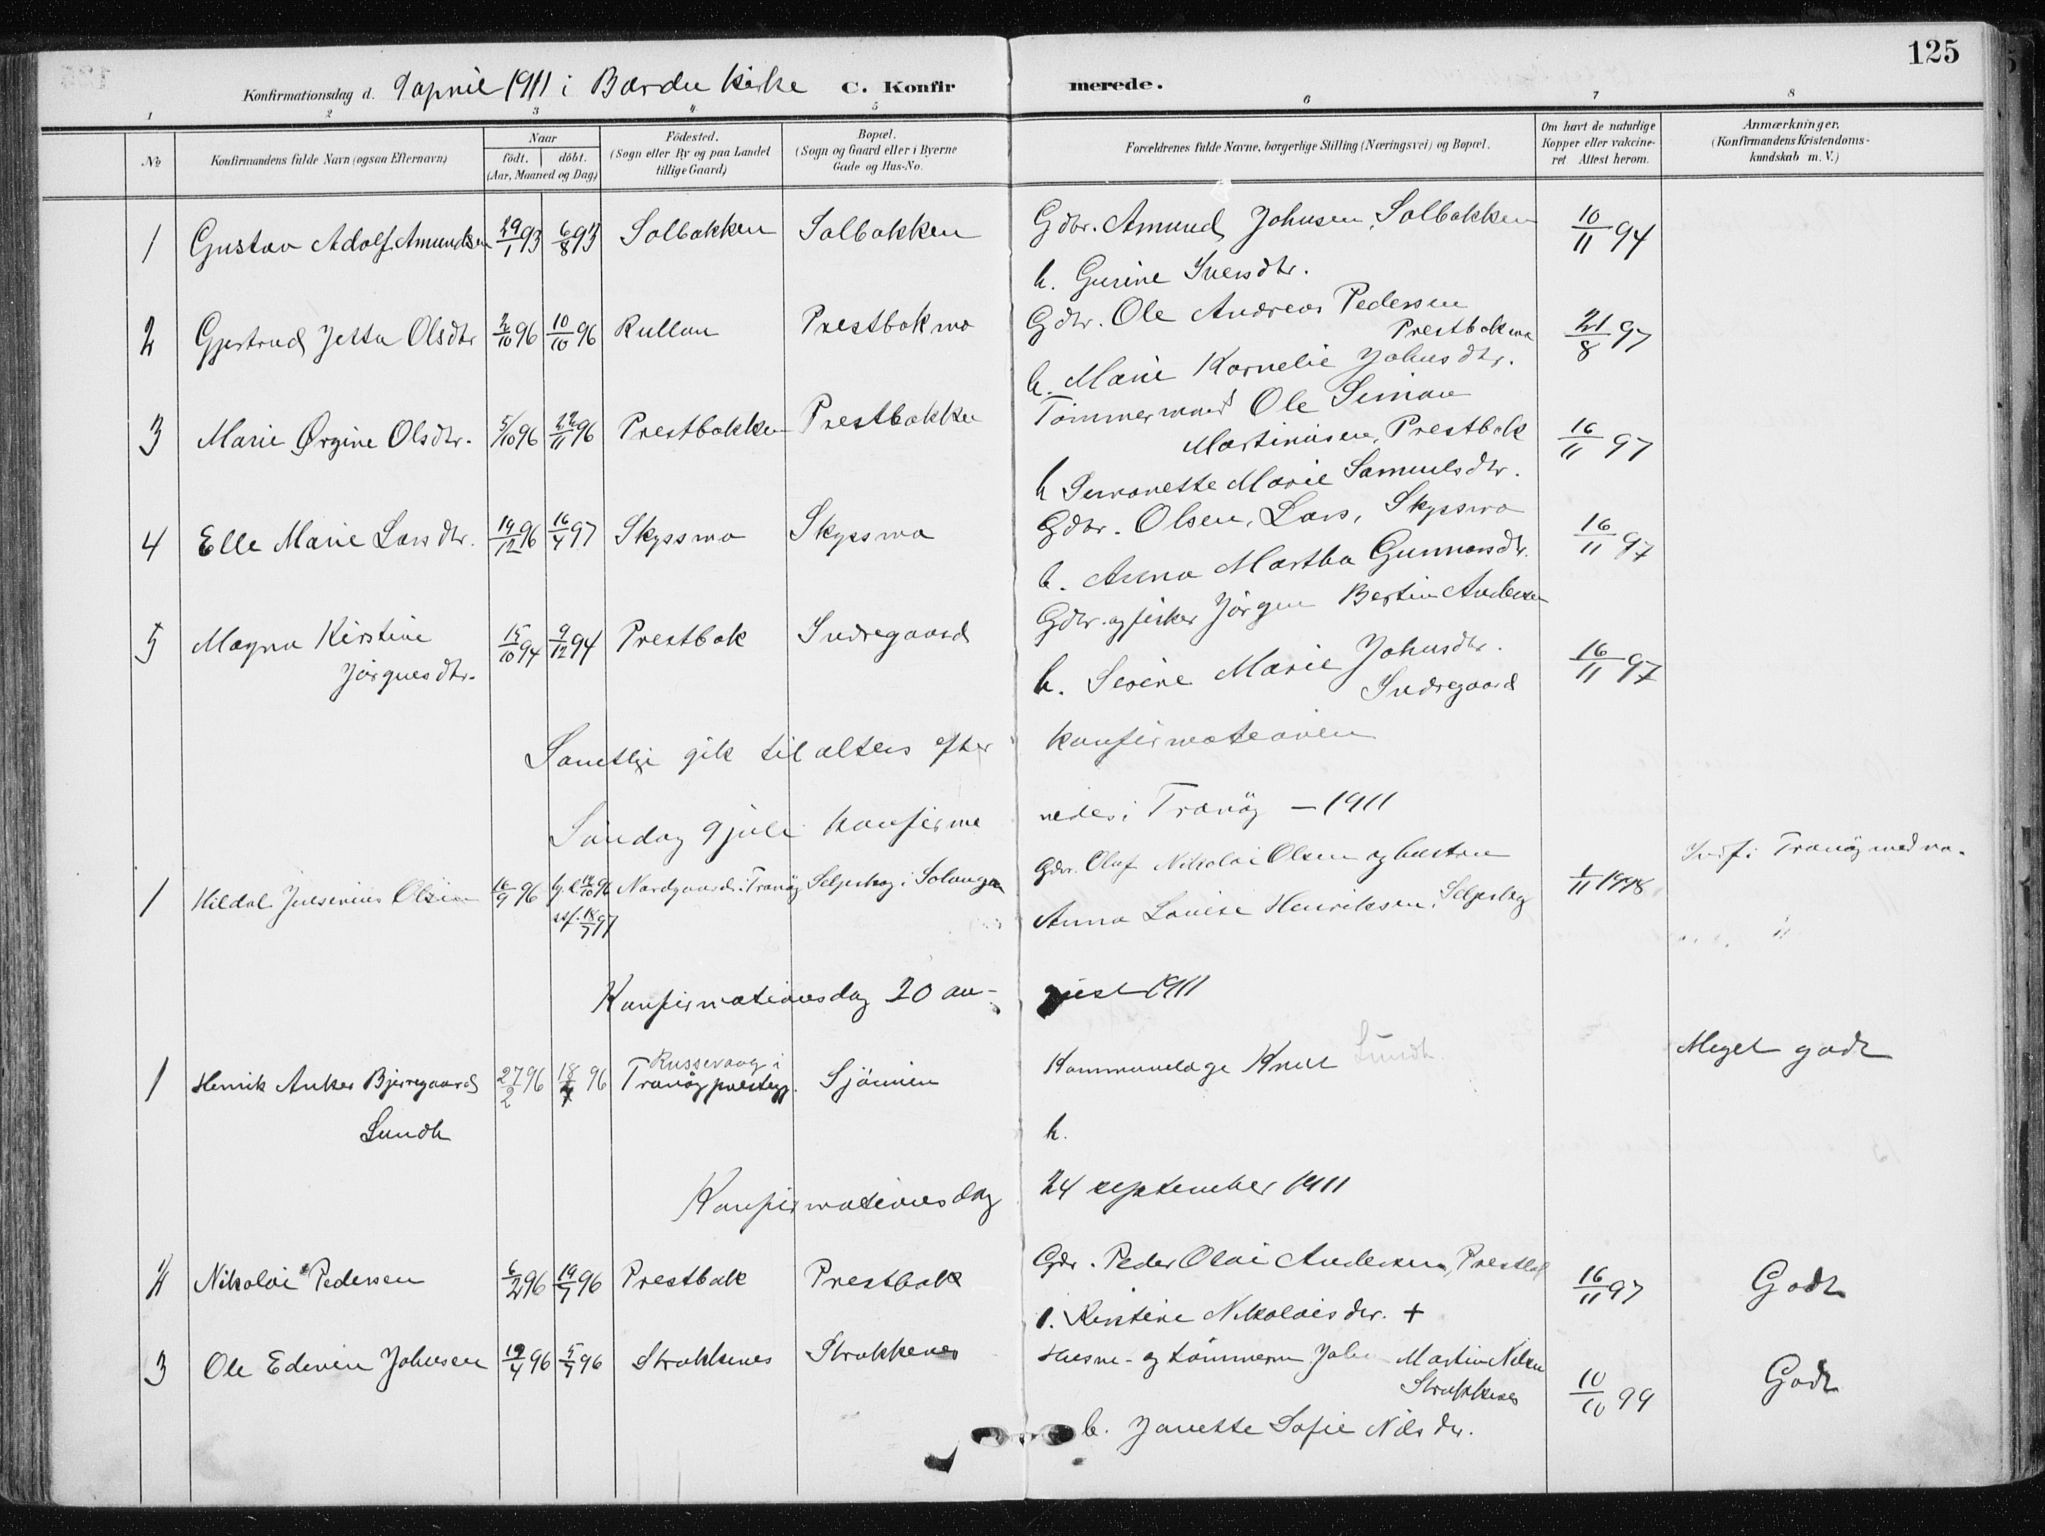 125
Konfirmationsdag d. 9 april 1911 i Bardu kirke C. Konfirmerede.
1 2 3 4 5 6 7 8
No Konfirmandens fulde Navn (ogsaa Efternavn) Naar født. døbt. (Aar, Maaned og Dag) Födested. (Sogn eller By og paa Landet tillige Gaard) Bopæl. (Sogn og Gaard eller i Byerne Gade og Hus-No. Forældrenes fulde Navne, borgerlige Stilling (Næringsvei) og Bopæl. Om havt de naturlige Kopper eller vaccineret Attest herom. Anmærkninger. (Konfirmandens Kristendomskundskab m. V.)
1 Gustav Adolf Amundsen 29/1 93 6/8 93 Solbakken Solbakken Gdbr. Amund Johnsen, Solbakken 10/11 94
h. Gurine Iversdtr.
2 Gjertrud Jetta Olsdtr 2/10 96 10/10 96 Rullan Prestbakmo Gdbr. Ole Andreas Pedersen
Prestbakmo 21/8 97
h. Marie Kornelie Johnsdtr.
3 Marie Ørgine Olsdtr. 5/10 96 22/11 96 Prestbakken Prestbakken Tømmermand Ole Simon
Martinusen, Prestbak 16/11 97
h Simonette Marie Samuelsdtr.
4 Elle Marie Larsdtr. 19/12 96 16/4 97 Skyssmo Skyssmo Gdbr. Olsen, Lars, Skyssmo 16/11 97
h. Anna Martha Gunnarsdtr.
5 Magna Kirstine 15/10 94 9/12 94 Prestbak Indregaard Gdbr. og fisker Jørgen Bertin Andersen
Jørgnesdtr. h. Serine Marie Johnsdtr. 16/11 97
Indregaard
Samtlige gik til alters efter konfirmationen
Søndag 9 juli konfirmeredes i Tranøy – 1911
1 Hildal Julsenius Olsen 16/9 96 Nordgaard i Tranøy Seljeskog i Solangen Gdbr. Oluf Nikolai Olsen og hustru
Anna Louise Henriksen, Seljeskog
Konfirmationsdag 20 august 1911
1 Henrik Anker Bjerregaard 27/2 96 18/4 96 Russevaag i
Tranøy prestegj. Sjøvein Kommunelæge Knut Lundh Meget godt
Lundh h.
Konfirmationsdag 24 september 1911
2 Nikolai Pedersen 6/2 96 19/7 96 Prestbak Prestbak Gdr. Peder Olai Andersen, Prestbak 16/11 97 Godt
Kirstine Nikolaisdtr. +
3 Ole Edevin Johnsen 19/4 96 5/7 96 Strokkenes Strokkenes Husm- og tømmerm. John Martin Nilsen
Strokkenes 10/10 99 Godt
h. Janette Sofie Nilsdtr.